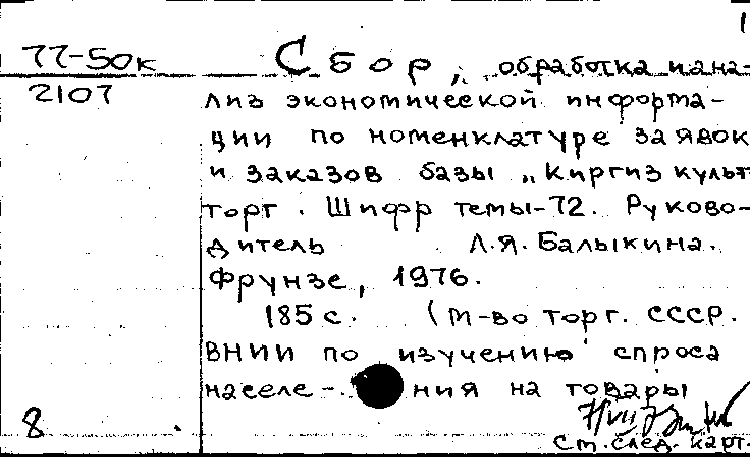 1
77-50к
2107
Сбор, обработка и ана-
лиз экономической информа-
ции по номенклатуре заявок
и заказов базы „Киргизкульт
торг. Шифр темы-72. Руково-
дитель Л.Я. Балыкина.
Фрунзе, 1976.
185 с. (М-во торг. СССР.
ВНИИ по изучению спроса
населе- ния на товары
8
см. след. карт.